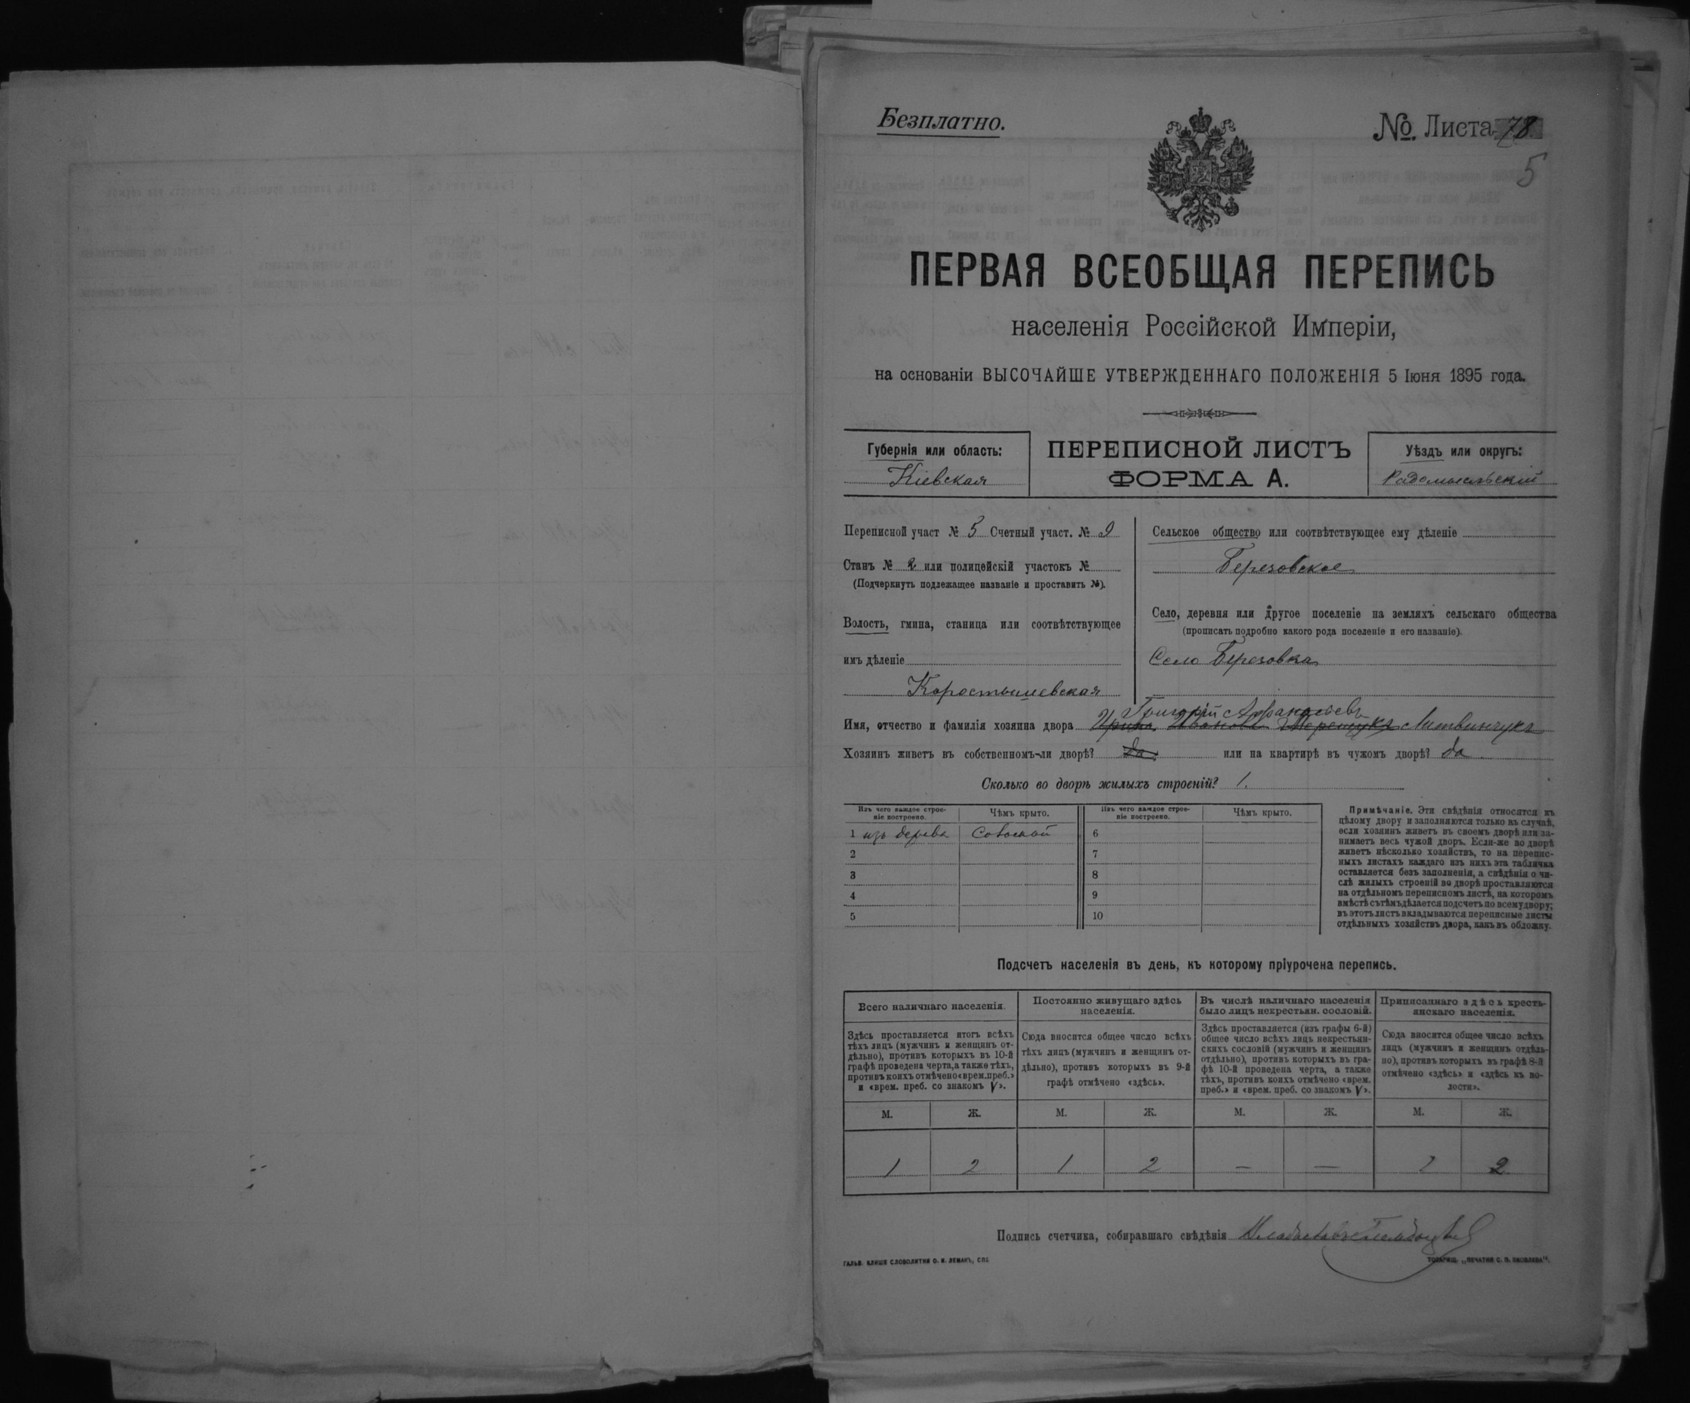 Безплатно.
№. Листа 78
5
ПЕРВАЯ ВСЕОБЩАЯ ПЕРЕПИСЬ
населенія Россійской Имперіи,
на основаніи ВЫСОЧАЙШЕ УТВЕРЖДЕННАГО ПОЛОЖЕНІЯ 5 Іюня 1895 года.
Губернія или область:
Кіевская
ПЕРЕПИСНОЙ ЛИСТЪ
ФОРМА А.
Уѣздъ или округъ:
Радомысльскій
Переписной участ № 5 Счетный участ. № 9
Станъ № 2 или полицейскій участокъ №
(Подчеркнуть подлежащее названіе и проставить №).
Волость, гмина, станица или соотвѣтствующее
имъ дѣленіе
Коростышевская
Сельское общество или соотвѣтствующее ему дѣленіе
Березовское
Село, деревня или другое поселеніе на земляхъ сельскаго общества
(прописать подробно какого рода поселеніе и его названіе).
Село Березовка
Григорій Афанасьевъ
Имя, отчество и фамилія хозяина двора Литвинчукъ
Хозяинъ живетъ въ собственномъ-ли дворѣ? да или на квартирѣ въ чужомъ дворѣ? да
Сколько во дворѣ жилыхъ строеній? 1.
Изъ чего каждое строеніе построено. Чѣмъ крыто. Изъ чего каждое строеніе построено. Чѣмъ крыто.
1 изъ дерева Соломой 6
2 7
3 8
4 9
5 10
Примѣчаніе. Эти свѣдѣнія относятся къ
цѣлому двору и заполняются только въ случаѣ,
если хозяинъ живетъ въ своемъ дворѣ или за-
нимаетъ весь чужой дворъ. Если-же во дворѣ
живетъ нѣсколько хозяйствъ, то на перепис-
ныхъ листахъ каждаго изъ нихъ эта табличка
оставляется безъ заполненія, а свѣдѣнія о чи-
слѣ жилыхъ строеній во дворѣ проставляются
на отдѣльномъ переписномъ листѣ, на которомъ
вмѣстѣ съ тѣмъ дѣлается подсчетъ по всему двору;
въ этотъ листъ вкладываются переписные листы
отдѣльныхъ хозяйствъ двора, какъ въ обложку.
Подсчетъ населенія въ день, къ которому пріурочена перепись.
Всего наличнаго населенія.
Здѣсь проставляется итогъ всѣхъ
тѣхъ лицъ (мужчинъ и женщинъ от-
дѣльно), противъ которыхъ въ 10-й
графѣ проведена черта, а также тѣхъ,
противъ коихъ отмѣчено «врем. преб.»
и «врем. преб. со знакомъ V».
Постоянно живущаго здѣсь
населенія.
Сюда вносится общее число всѣхъ
тѣхъ лицъ (мужчинъ и женщинъ от-
дѣльно), противъ которыхъ въ 9-й
графѣ отмѣчено «здѣсь».
Въ числѣ наличнаго населенія
было лицъ некрестьян. сословій.
Здѣсь проставляется (изъ графы 6-й)
общее число всѣхъ лицъ некрестьян-
скихъ сословій (мужчинъ и женщинъ
отдѣльно), противъ которыхъ въ гра-
фѣ 10-й проведена черта, а также
тѣхъ, противъ коихъ отмѣчено «врем.
преб.» и «врем. преб. со знакомъ V».
Приписаннаго здѣсь кресть-
янскаго населенія.
Сюда вносится общее число всѣхъ
лицъ (мужчинъ и женщинъ отдѣль-
но), противъ которыхъ въ графѣ 8-й
отмѣчено «здѣсь» и «здѣсь къ во-
лости».
М. Ж. М. Ж. М. Ж. М. Ж.
1 2 1 2 — — 2
Подпись счетчика, собиравшаго свѣдѣнія
ГАЛЬВ. КЛИШЕ СЛОВОЛИТНИ О. И. ЛЕМАНЪ, СПБ
ТОВАРИЩ. „ПЕЧАТНЯ С. П. ЯКОВЛЕВА“.